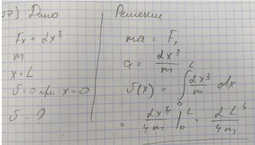 37) Дано
Fₓ = αx³
m
x = L
υ = 0 при x = 0
υ - ?
Решение
ma = Fₓ
a = αx³/m
υ(x) = ∫₀ᴸ αx³/m dx
= αx⁴/4m |₀ᴸ = αL⁴/4m